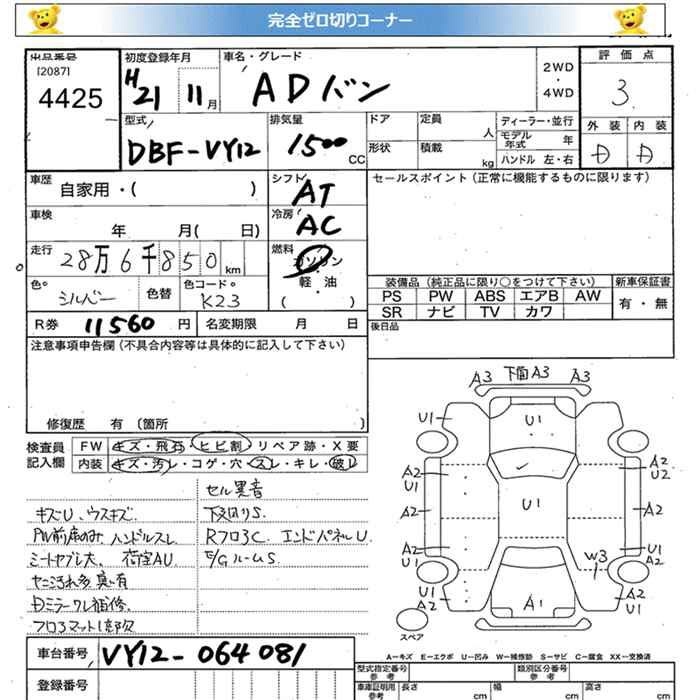 完全ゼロ切りコーナー
出品番号
[2087]
4425
初度登録年月
H21 11月
車名・グレード
ADバン
2WD
・
4WD
評価点
3
外装 内装
D D
型式
DBF-VY12
排気量
1500 CC
ドア
定員 人
形状
積載 kg
ディーラー・並行
モデル年式 年
ハンドル 左・右
車歴 自家用・( )
シフト AT
セールスポイント(正常に機能するものに限ります)
車検 年 月( 日)
冷房 AC
走行 28万6千850km
燃料 ガソリン
軽・油
( )
色○ シルバー 色替 色コード○ K23
装備品(純正品に限り○をつけて下さい) 新車保証書
PS PW ABS エアB AW
SR ナビ TV カワ
有・無
R券 11560円 名変期限 月 日
後日品
注意事項申告欄(不具合内容等は具体的に記入して下さい)
修復歴 有 〔箇所 〕
検査員記入欄
FW キズ・飛石・ヒビ割・リペア跡・X要
内装 キズ・汚レ・コゲ・穴・スレ・キレ・破レ
セル異音
キズU、ウスキズ 下廻りS
PW前席のみ、ハンドルスレ Rフロ3C エンドパネルU
シートヤブレ大、荷室AU E/GルームS
モニ汚れ多
Dミラーワレ補修
フロアマット1部欠
A3 下面A3 A3
U1 U1 U1
A2 A2 U2
A2 U1 A2
A2 U1 W3 U1 A2
U1 A2 A1 A2 U1
スペア
A…キズ E…エクボ U…凹み W…補修跡 S…サビ C…腐食 XX…交換済
車台番号 VY12-064081
登録番号
型式指定番号 参考
類別区分番号 参考
車庫証明用 参考
長さ cm 幅 cm 高さ cm